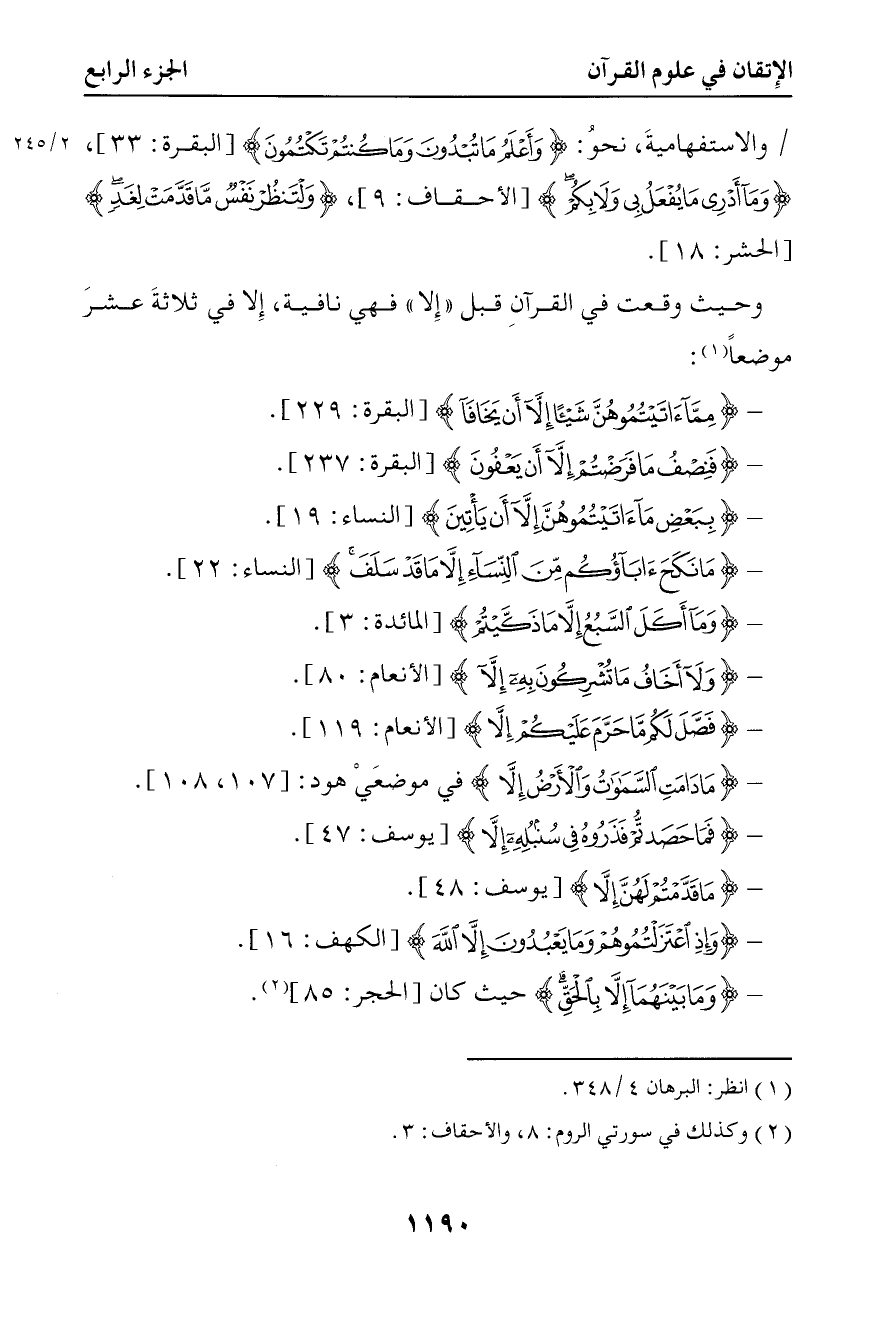 الإتقان في علوم القرآن الجزء الرابع
/ والاستفهاميةَ، نحوُ: ﴿وَأَعْلَمُ مَا تُبْدُونَ وَمَا كُنتُمْ تَكْتُمُونَ﴾ [البقرة: ٣٣]، ٢٤٥/٢
﴿وَمَآ أَدْرِى مَا يُفْعَلُ بِى وَلَا بِكُمْ ۖ﴾ [الأحقاف: ٩]، ﴿وَلْتَنظُرْ نَفْسٌ مَّا قَدَّمَتْ لِغَدٍ ۖ﴾
[الحشر: ١٨].
وحيث وقعت في القرآنِ قبل «إلا» فهي نافية، إلا في ثلاثةَ عشرَ
موضعاً(١):
– ﴿مِمَّآ ءَاتَيْتُمُوهُنَّ شَيْـًٔا إِلَّآ أَن يَخَافَآ﴾ [البقرة: ٢٢٩].
– ﴿فَنِصْفُ مَا فَرَضْتُمْ إِلَّآ أَن يَعْفُونَ﴾ [البقرة: ٢٣٧].
– ﴿بِبَعْضِ مَآ ءَاتَيْتُمُوهُنَّ إِلَّآ أَن يَأْتِينَ﴾ [النساء: ١٩].
– ﴿مَا نَكَحَ ءَابَآؤُكُم مِّنَ ٱلنِّسَآءِ إِلَّا مَا قَدْ سَلَفَ ۚ﴾ [النساء: ٢٢].
– ﴿وَمَآ أَكَلَ ٱلسَّبُعُ إِلَّا مَا ذَكَّيْتُمْ﴾ [المائدة: ٣].
– ﴿وَلَآ أَخَافُ مَا تُشْرِكُونَ بِهِۦٓ إِلَّآ﴾ [الأنعام: ٨٠].
– ﴿فَصَّلَ لَكُم مَّا حَرَّمَ عَلَيْكُمْ إِلَّا﴾ [الأنعام: ١١٩].
– ﴿مَا دَامَتِ ٱلسَّمَٰوَٰتُ وَٱلْأَرْضُ إِلَّا﴾ في موضعَيْ هود: [١٠٧، ١٠٨].
– ﴿فَمَا حَصَدتُّمْ فَذَرُوهُ فِى سُنۢبُلِهِۦٓ إِلَّا﴾ [يوسف: ٤٧].
– ﴿مَا قَدَّمْتُمْ لَهُنَّ إِلَّا﴾ [يوسف: ٤٨].
– ﴿وَإِذِ ٱعْتَزَلْتُمُوهُمْ وَمَا يَعْبُدُونَ إِلَّا ٱللَّهَ﴾ [الكهف: ١٦].
– ﴿وَمَا بَيْنَهُمَآ إِلَّا بِٱلْحَقِّ ۗ﴾ حيث كان [الحجر: ٨٥](٢).
(١) انظر: البرهان ٣٤٨/٤.
(٢) وكذلك في سورتي الروم: ٨، والأحقاف: ٣.
١١٩٠